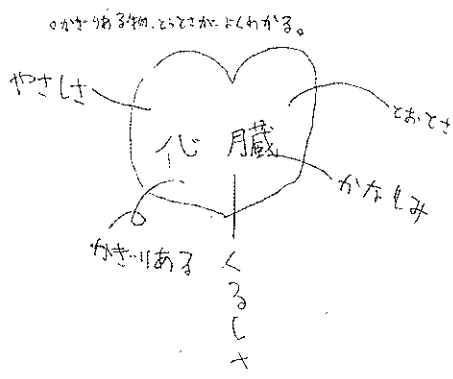 。かぎりある物、とうとさが、よくわかる。
やさしさ
とおとさ
心臓
かなしみ
かぎりある
くるしさ